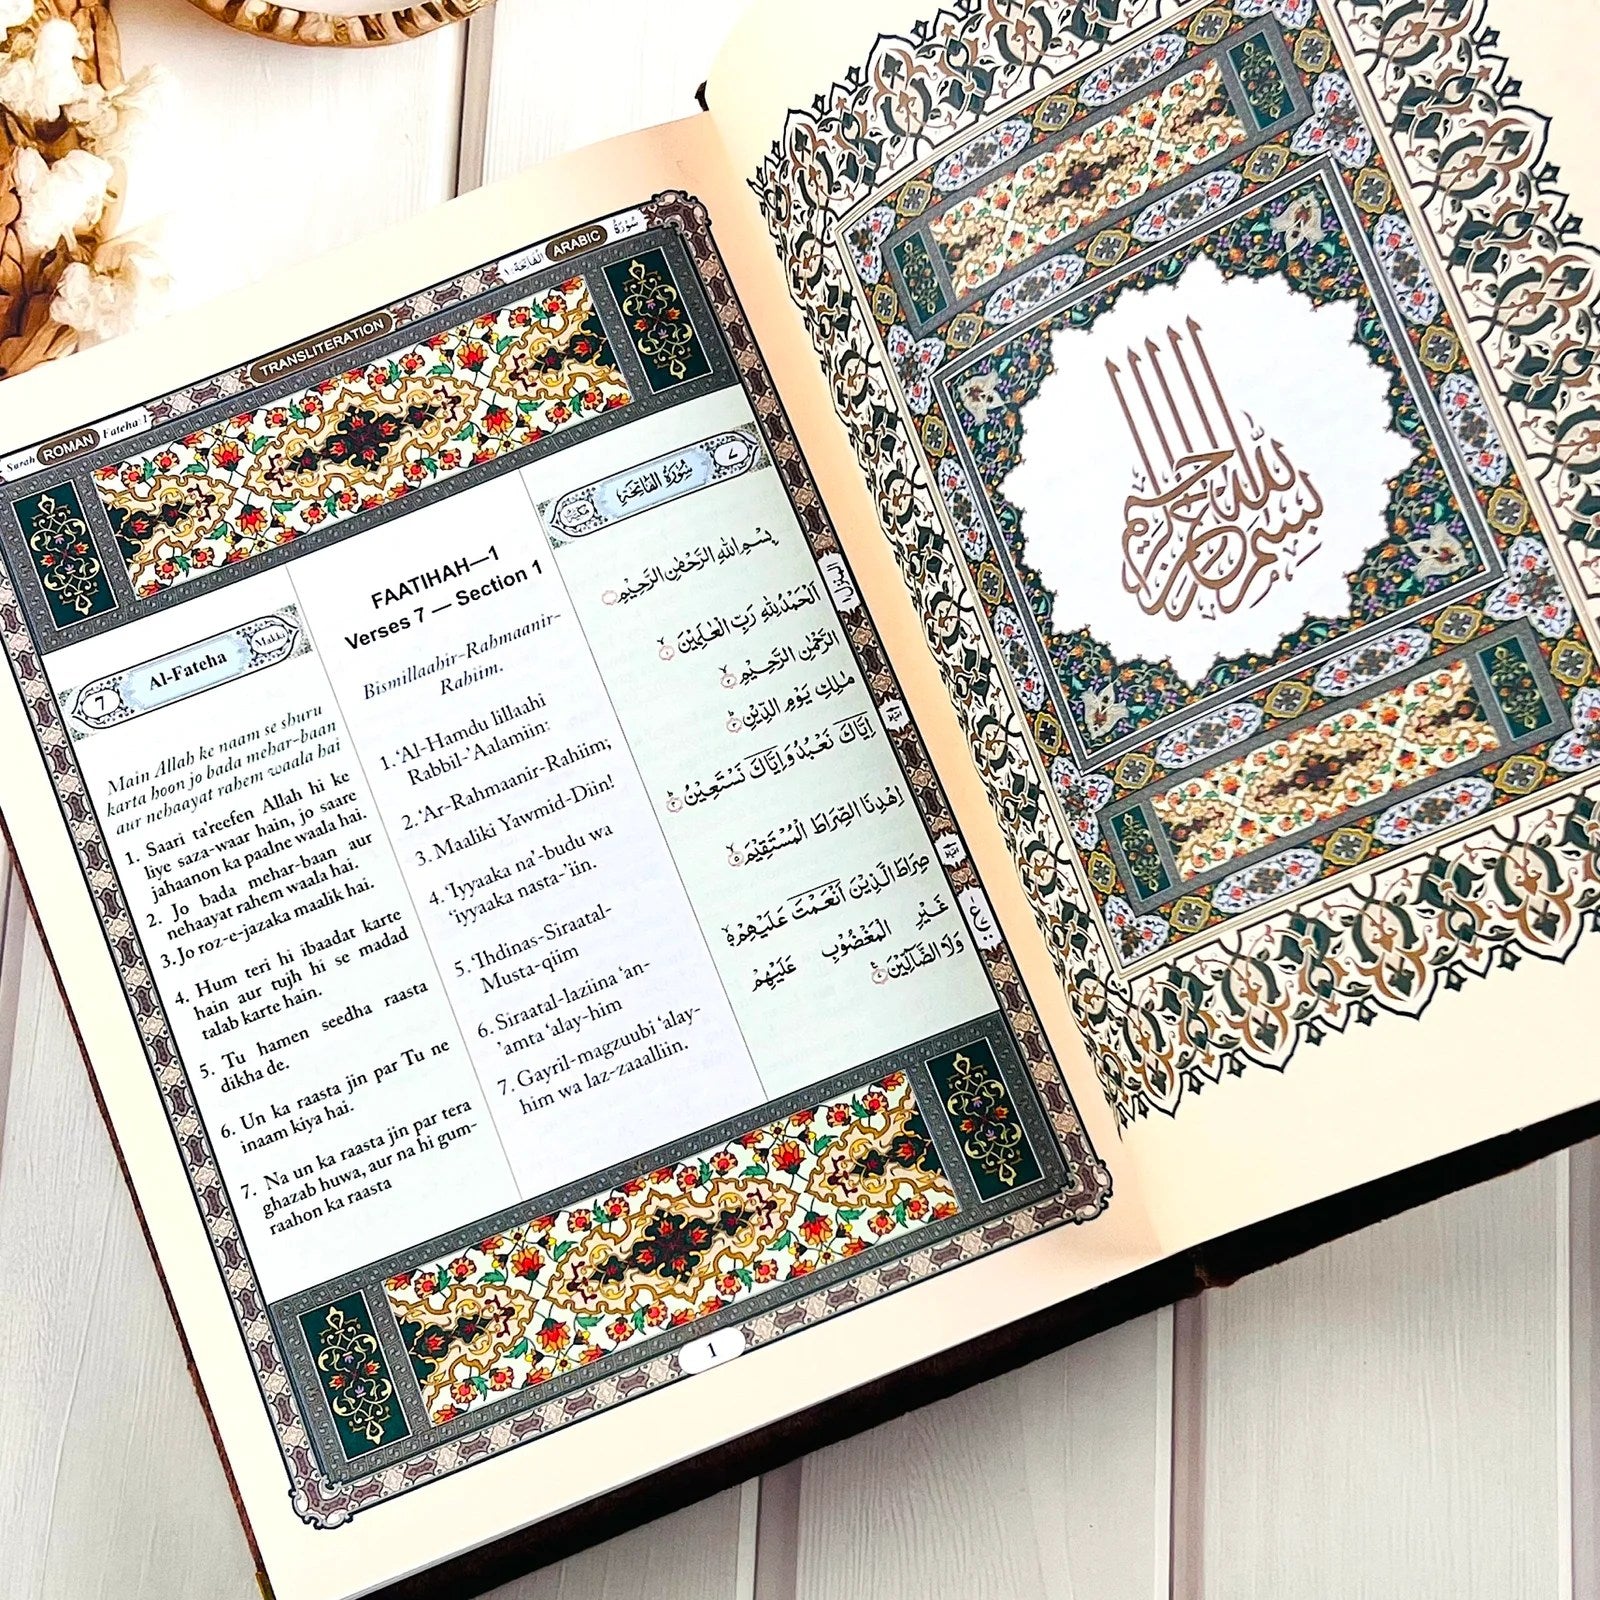 Surah ROMAN Fateha 1
TRANSLITERATION
الْفَاتِحَة ١ ARABIC سُوْرَةُ
7 Al-Fateha Makki
Main Allah ke naam se shuru
karta hoon jo bada mehar-baan
aur nehaayat rahem waala hai
1. Saari ta'reefen Allah hi ke
liye saza-waar hain, jo saare
jahaanon ka paalne waala hai.
2. Jo bada mehar-baan aur
nehaayat rahem waala hai.
3. Jo roz-e-jazaka maalik hai.
4. Hum teri hi ibaadat karte
hain aur tujh hi se madad
talab karte hain.
5. Tu hamen seedha raasta
dikha de.
6. Un ka raasta jin par Tu ne
inaam kiya hai.
7. Na un ka raasta jin par tera
ghazab huwa, aur na hi gum-
raahon ka raasta
FAATIHAH—1
Verses 7 — Section 1
Bismillaahir-Rahmaanir-
Rahiim.
1. 'Al-Hamdu lillaahi
Rabbil-'Aalamiin:
2. 'Ar-Rahmaanir-Rahiim;
3. Maaliki Yawmid-Diin!
4. 'Iyyaaka na'-budu wa
'iyyaaka nasta-'iin.
5. 'Ihdinas-Siraatal-
Musta-qiim
6. Siraatal-laziina 'an-
'amta 'alay-him
7. Gayril-magzuubi 'alay-
him wa laz-zaaalliin.
سُوْرَةُ الْفَاتِحَةِ ٧
بِسْمِ اللّٰهِ الرَّحْمٰنِ الرَّحِيْمِ
اَلْحَمْدُ لِلّٰهِ رَبِّ الْعٰلَمِيْنَ ١
الرَّحْمٰنِ الرَّحِيْمِ ٢
مٰلِكِ يَوْمِ الدِّيْنِ ٣
اِيَّاكَ نَعْبُدُ وَاِيَّاكَ نَسْتَعِيْنُ ٤
اِهْدِنَا الصِّرَاطَ الْمُسْتَقِيْمَ ٥
صِرَاطَ الَّذِيْنَ اَنْعَمْتَ عَلَيْهِمْ ٦
غَيْرِ الْمَغْضُوْبِ عَلَيْهِمْ
وَلَا الضَّآلِّيْنَ ٧
1
بسم الله الرحمن الرحيم